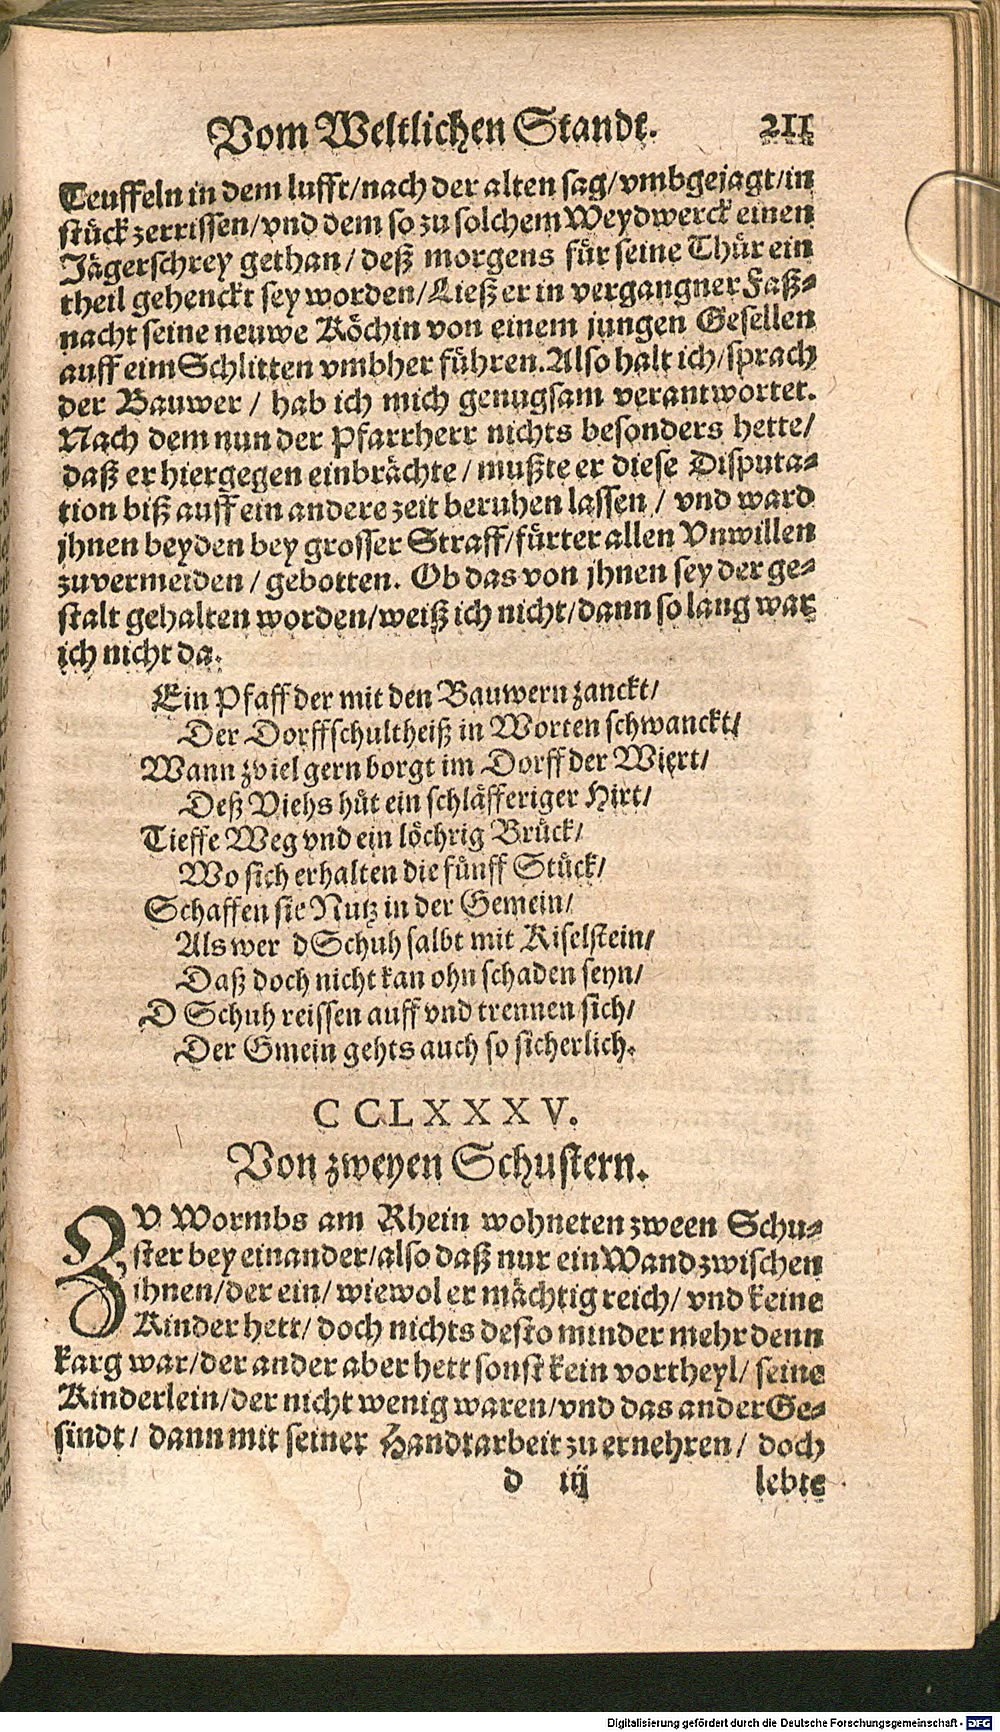 Vom Weltlichen Standt. 211
Teuffeln in dem lufft/nach der alten sag/vmbgejagt/in
stück zerrissen/vnd dem so zu solchem Weydwerck einen
Jägerschrey gethan/deß morgens für seine Thür ein
theil gehenckt sey worden/Ließ er in vergangner Faß-
nacht seine neuwe Köchin von einem jungen Gesellen
auff eim Schlitten vmbher führen. Also halt ich/sprach
der Bauwer/hab ich mich genugsam verantwortet.
Nach dem nun der Pfarrherr nichts besonders hette/
daß er hiergegen einbrächte/mußte er diese Disputa-
tion biß auff ein andere zeit beruhen lassen/vnd ward
jhnen beyden bey grosser Straff/fürter allen Vnwillen
zuvermeiden/gebotten. Ob das von jhnen sey der ge-
stalt gehalten worden/weiß ich nicht/dann so lang war
ich nicht da.
Ein Pfaff der mit den Bauwern zanckt/
Der Dorffschultheiß in Worten schwanckt/
Wann zviel gern borgt im Dorff der Wiert/
Deß Viehs hüt ein schläfferiger Hirt/
Tieffe Weg vnd ein löchrig Brück/
Wo sich erhalten die fünff Stück/
Schaffen sie Nutz in der Gemein/
Als wer dSchuh salbt mit Kiselstein/
Daß doch nicht kan ohn schaden seyn/
D Schuh reissen auff vnd trennen sich/
Der Gmein gehts auch so sicherlich.
CCLXXXV.
Von zweyen Schustern.
ZV Wormbs am Rhein wohneten zween Schu-
ster bey einander/also daß nur ein Wand zwischen
jhnen/der ein/wiewol er mächtig reich/vnd keine
Kinder hett/doch nichts desto minder mehr denn
karg war/der ander aber hett sonst kein vortheyl/seine
Kinderlein/der nicht wenig waren/vnd das ander Ge-
sindt/dann mit seiner Handtarbeit zu ernehren/doch
d iij lebte
Digitalisierung gefördert durch die Deutsche Forschungsgemeinschaft - DFG